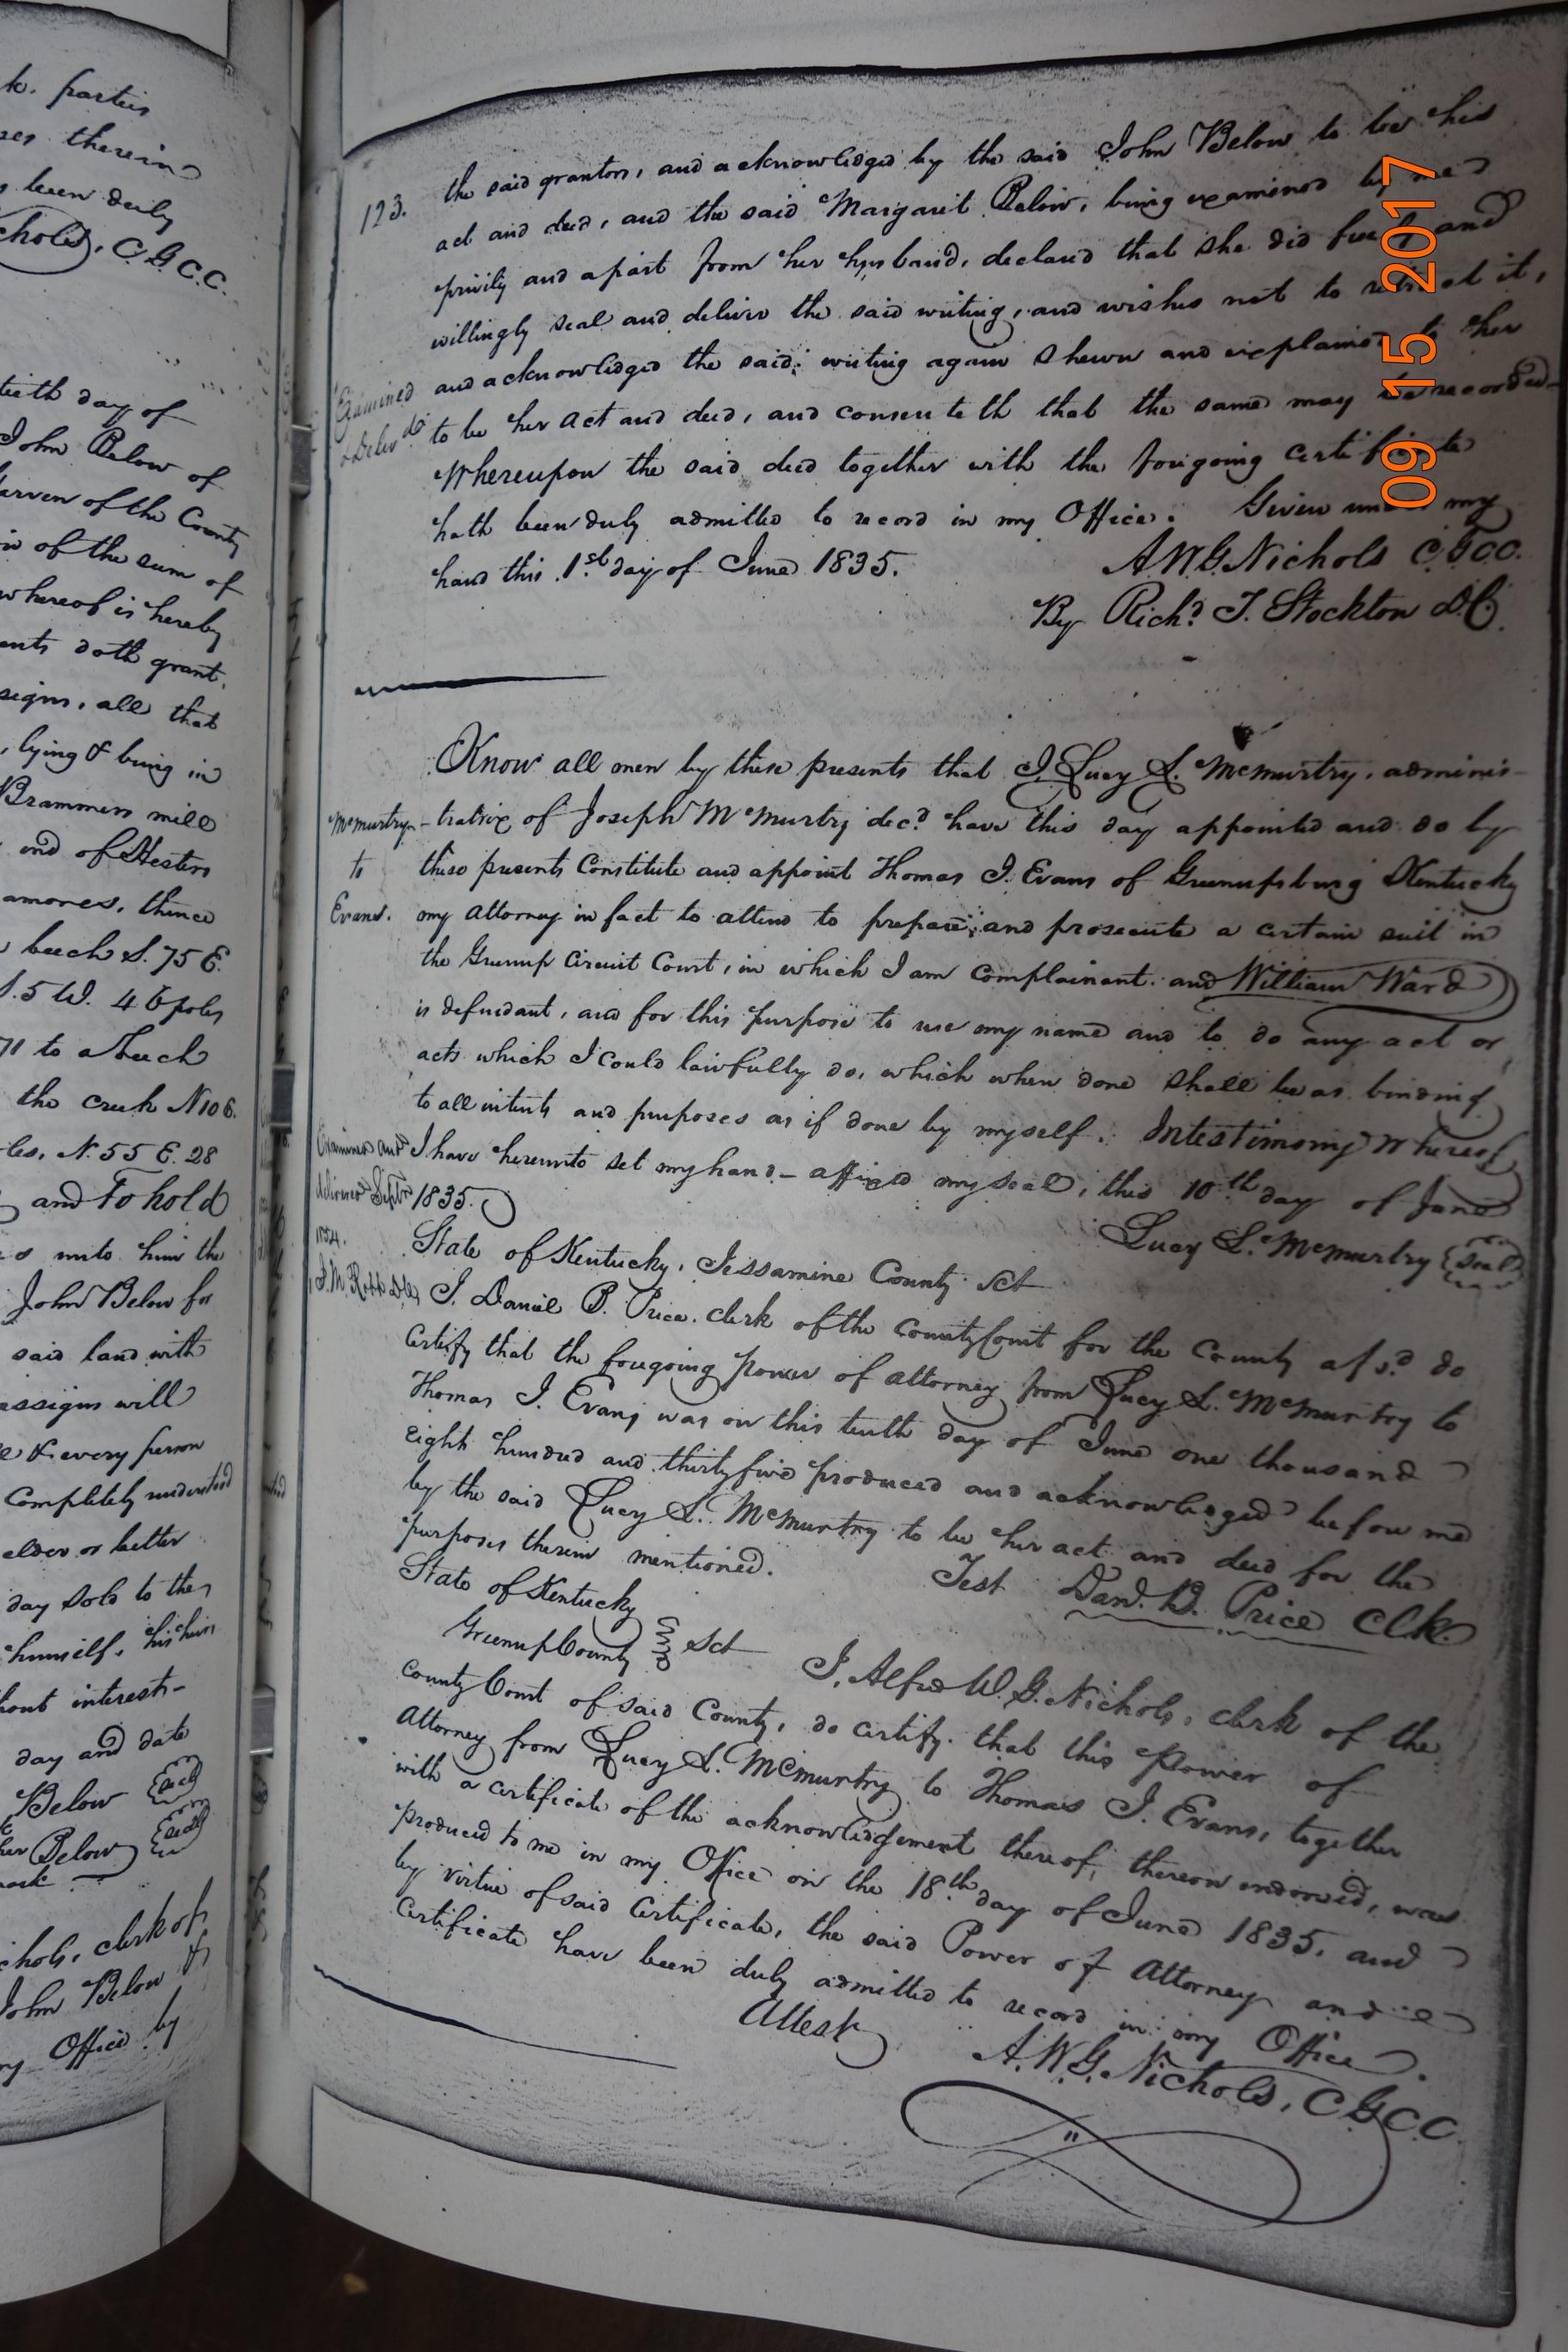 k. parties
therein
been duly
C.G.C.C.
day of
John Below of
of the County
of the sum of
whereof is hereby
doth grant,
all that
, lying & being in
Brammers mill
end of Hesters
thence
beech S. 75 E.
S. 5 W. 46 poles
71 to a beech
the creek N 10 6.
N. 55 E. 28
and To hold
unto him the
John Below for
said land with
assigns will
& every person
Completely understood
elder or better
day sold to the
himself, his heirs
interest-
day and date
Below Seal
her Below Seal
mark
clerk of
John Below &
my Office by
123.
the said grantors, and acknowledged by the said John Below to be his
act and deed, and the said Margaret Below, being examined by me
privily and apart from her husband, declared that she did freely and
willingly seal and deliver the said writing, and wishes not to retract it,
and acknowledged the said writing again shewn and explained to her
to be her act and deed, and consenteth that the same may be recorded-
Whereupon the said deed together with the foregoing certificate
hath been duly admitted to record in my Office. Given under my
hand this 1st day of June 1835.
A.W.G. Nichols C.G.C.C.
By Richd. T. Stockton D.C.
Examined
& Delivd
09 15 2017
Know all men by these presents that I, Lucy S. McMurtry, adminis-
-tratrix of Joseph McMurtry decd. have this day appointed and do by
these presents Constitute and appoint Thomas I. Evans of Greenupsburg Kentucky
my Attorney in fact to attend to prepare, and prosecute a certain suit in
the Greenup Circuit Court, in which I am complainant and William Ward
is defendant, and for this purpose to use my name and to do any act or
acts which I could lawfully do, which when done shall be as binding
to all intents and purposes as if done by myself. In testimony whereof
I have hereunto set my hand - affixed my seal, this 10th day of June
1835.
Lucy S. McMurtry Seal
McMurtry
to
Evans.
Examined and
delivered Sept
State of Kentucky, Jessamine County Sct
I, Daniel B. Price, clerk of the County Court for the County afsd. do
Certify that the foregoing power of attorney from Lucy S. McMurtry to
Thomas I. Evans was on this tenth day of June one thousand
eight hundred and thirty five produced and acknowledged before me
by the said Lucy S. McMurtry to be her act and deed for the
purposes therein mentioned.
Test Danl. B. Price Clk.
State of Kentucky
Greenup County Sct
I, Alfred W. G. Nichols, clerk of the
County Court of said County, do certify that this Power of
Attorney from Lucy S. McMurtry to Thomas I. Evans, together
with a certificate of the acknowledgement thereof, thereon endorsed, was
produced to me in my Office on the 18th day of June 1835, and
by virtue of said Certificate, the said Power of Attorney and
Certificate have been duly admitted to record in my Office.
Attest
A. W. G. Nichols, C G C C